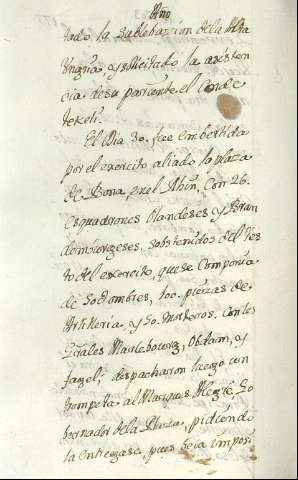 Año
tado la sublebazion de la Alta
Ungria, y solicitado la asisten
cia de su pariente el Conde
tekeli.
El Dia 30. fue embestida
por el exercito aliado la plaza
de Bona, en el Rhin, Con 26.
Esquadrones Olandeses y Bran
demburgeses, sobstenidos del res
to del exercito, que se Componia
de 80 Dombres, 100. piezas de
Artilleria, y 50. morteros. Con los
Gñales Marlebourg, Obdam, y
fagel; despacharon luego un
trompeta al Marques Alegre Go
bernador de la Plaza, pidiendo
la entregase, pues beia imposi